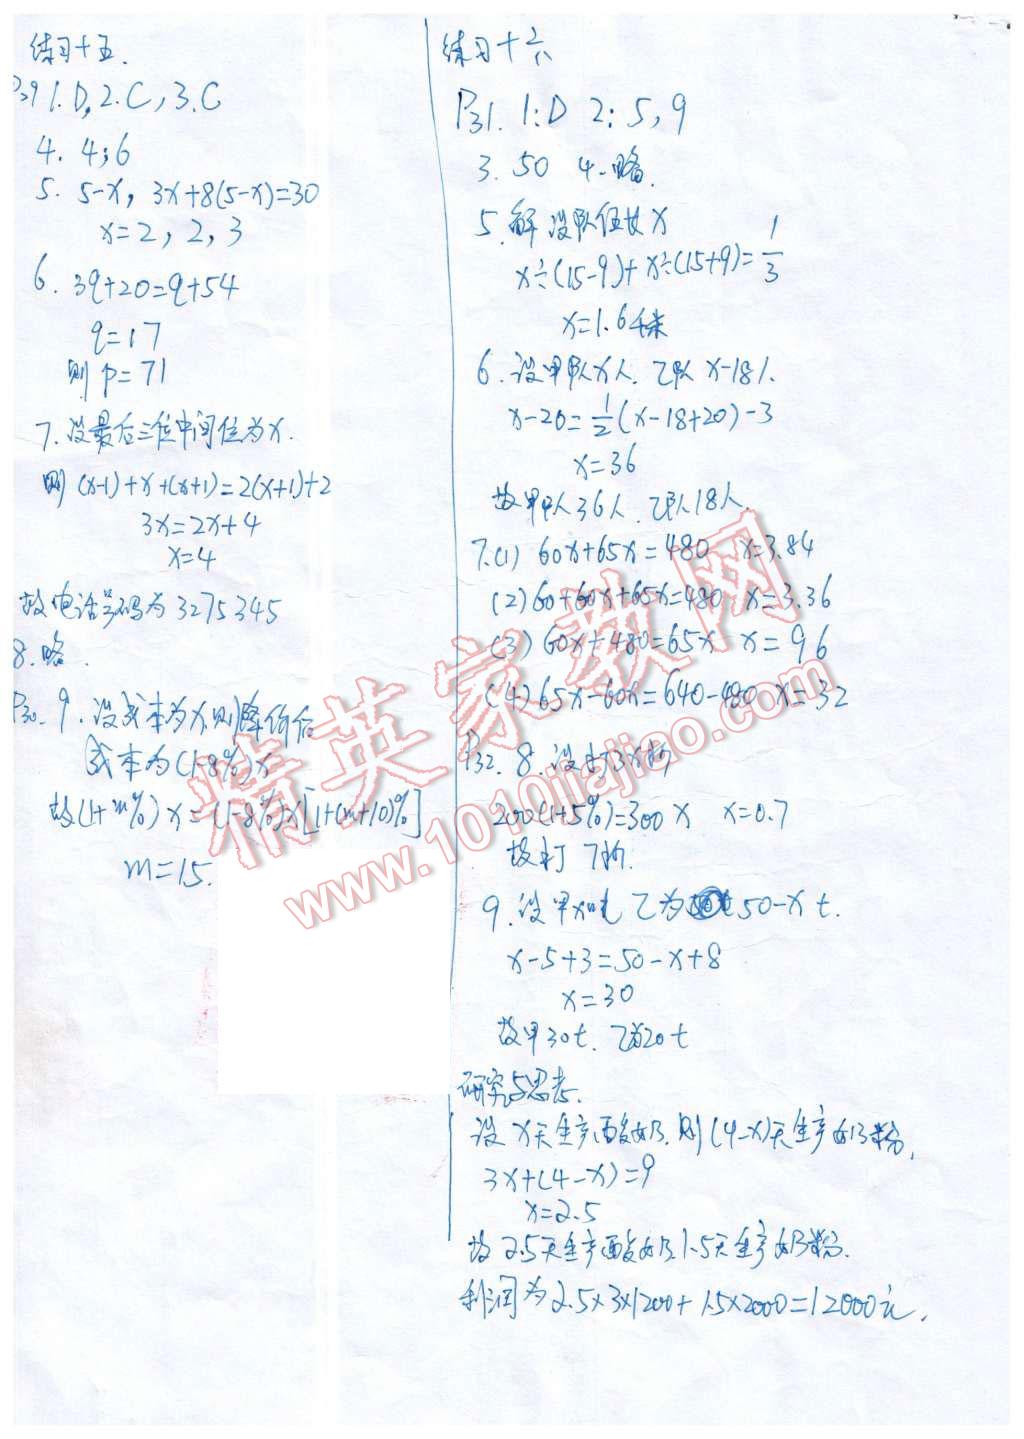 练习十五.
P29 1.D, 2.C, 3.C
4. 4;6
5. 5-x, 3x+8(5-x)=30
x=2, 2, 3
6. 3q+20=q+54
q=17
则 p=71
7. 设最后三位中间位为x.
则 (x-1)+x+(x+1)=2(x+1)+2
3x=2x+4
x=4
故电话号码为 3275345
8.略.
P30. 9.设成本为x,则降价后
成本为(1-8%)x
故(1+m%)x=(1-8%)x[1+(m+10)%]
m=15.
练习十六
P31. 1:D 2: 5,9
3. 50 4.略.
5.解 设队伍长x
x÷(15-9)+x÷(15+9)=1/3
x=1.6千米
6.设甲队x人.乙队 x-18人.
x-20=1/2(x-18+20)-3
x=36
故甲队36人.乙队18人.
7.(1) 60x+65x=480 x=3.84
(2)60+60x+65x=480 x=3.36
(3) 60x+480=65x x=96
(4)65x-60x=640-480 x=32
P32. 8.设打x折
200(1+5%)=300x x=0.7
故打7折.
9.设甲x吨 乙为50-x t.
x-5+3=50-x+8
x=30
故甲30t. 乙为20t
研究与思考.
设x天生产酸奶.则(4-x)天生产奶粉,
3x+(4-x)=9
x=2.5
故2.5天生产酸奶1.5天生产奶粉.
利润为2.5×3×1200+1.5×2000=12000元.
精英家教网
www.1010jiajiao.com